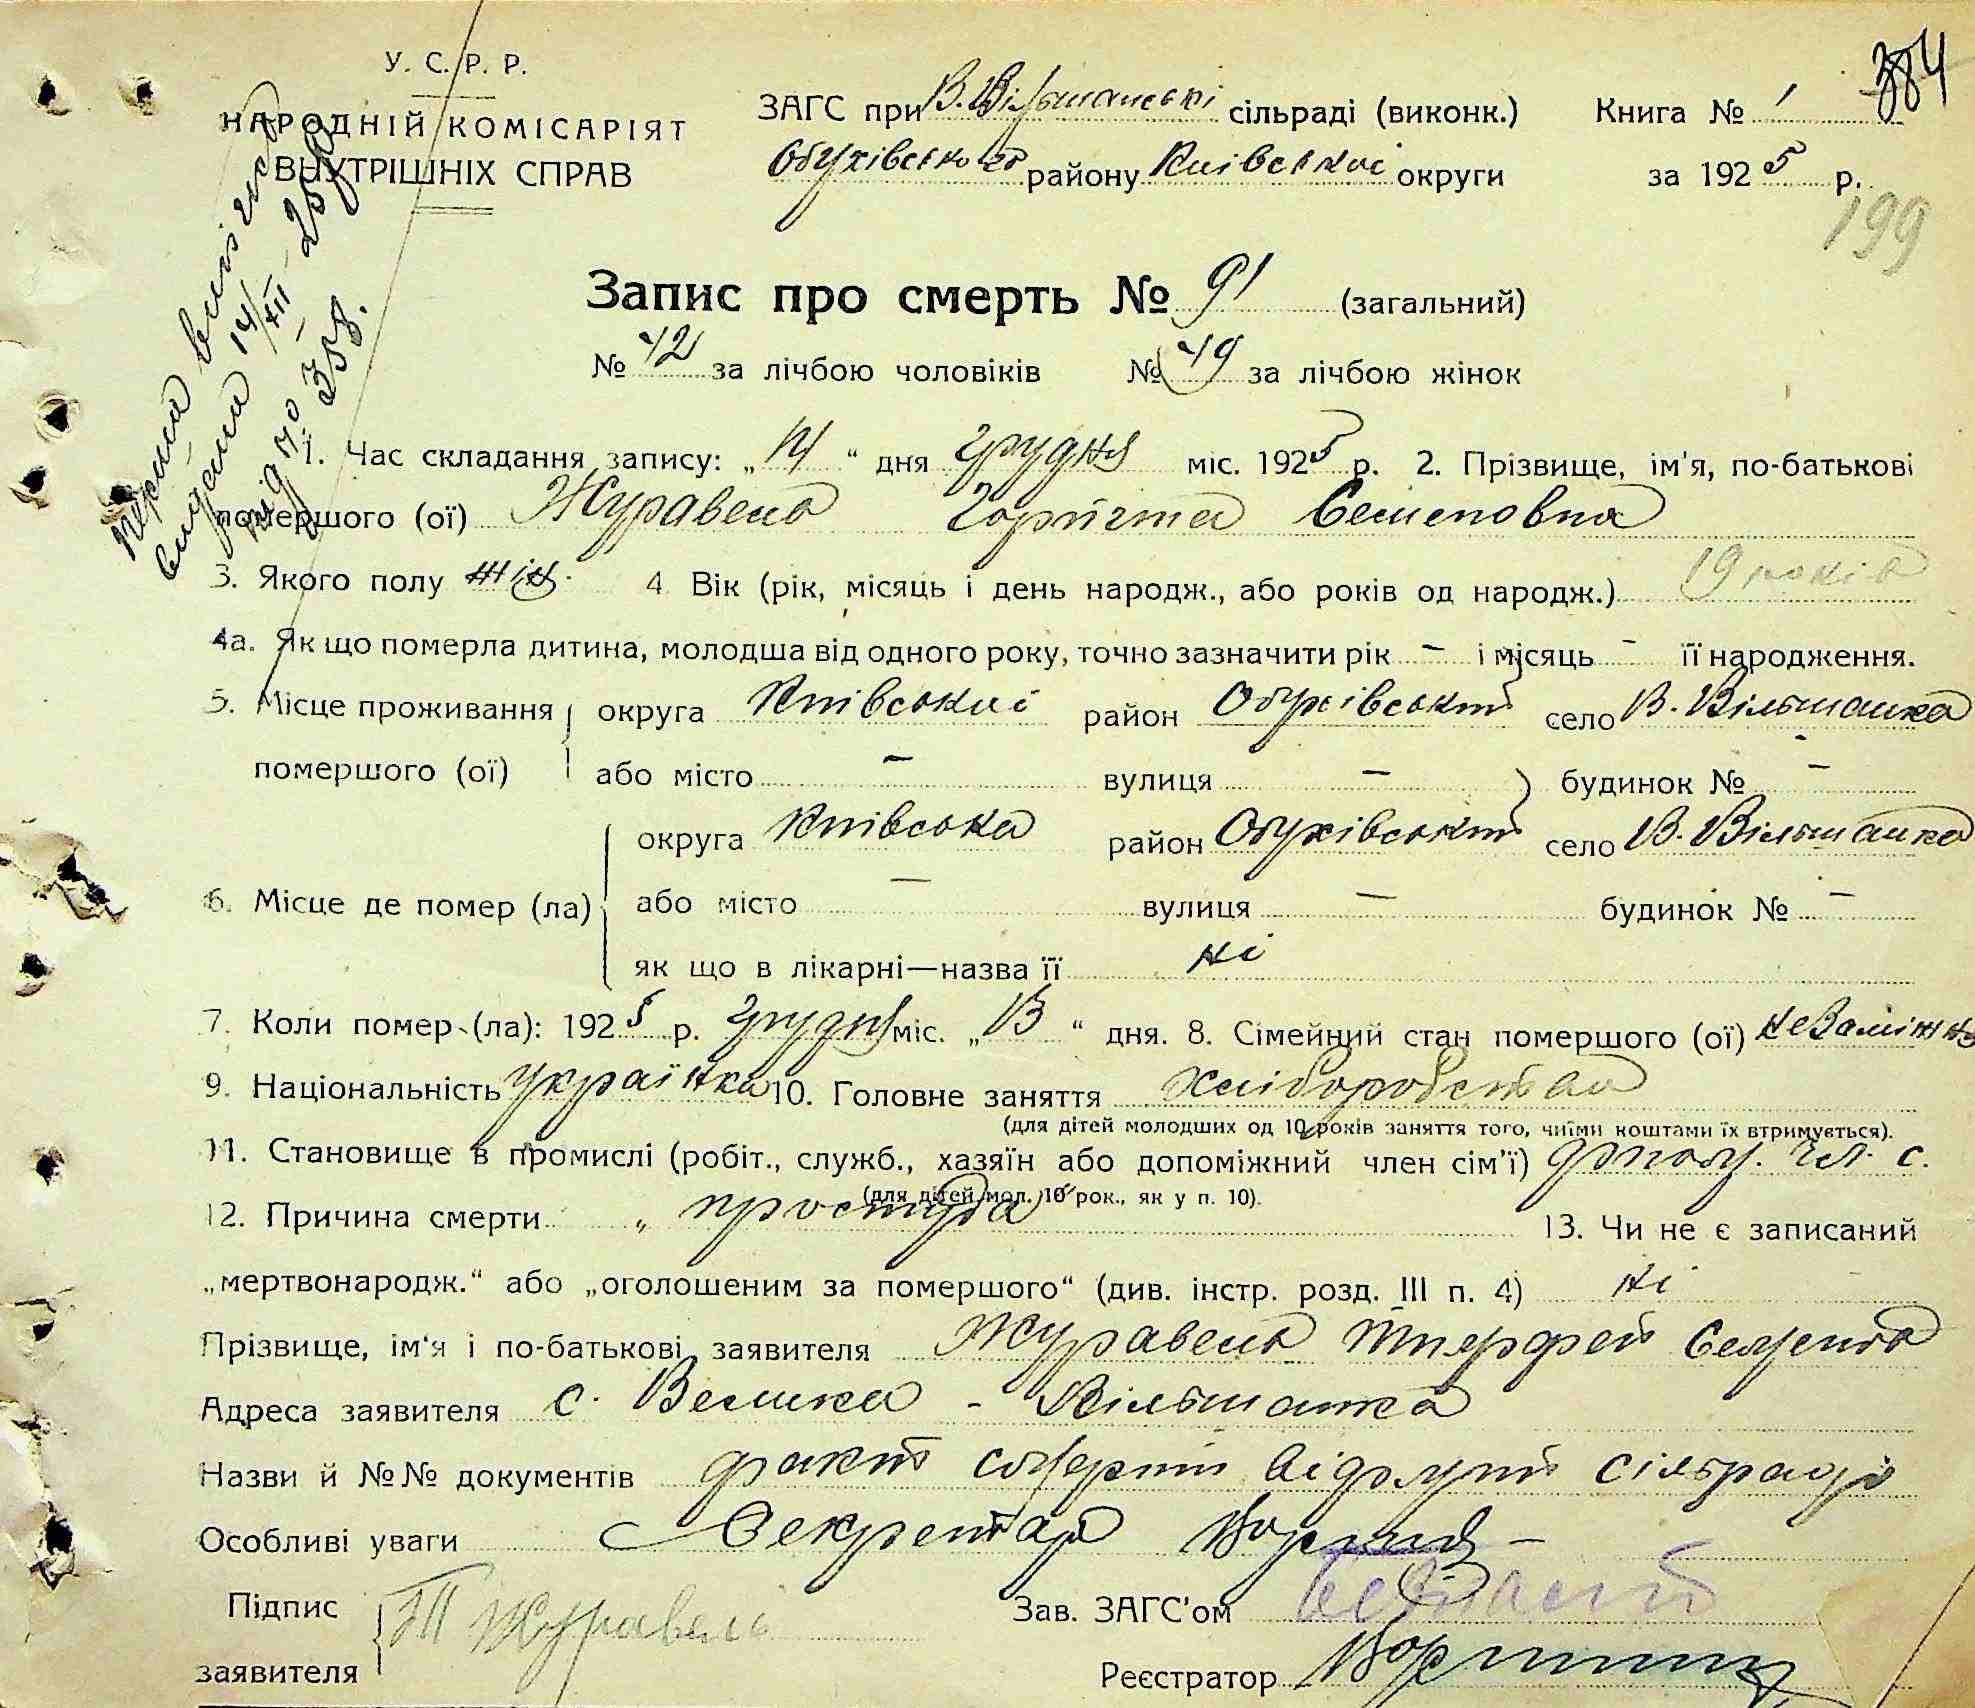 У. С. Р. Р.
НАРОДНІЙ КОМІСАРІЯТ
ВНУТРІШНІХ СПРАВ
ЗАГС при В. Вільшанські сільраді (виконк.) Книга № 1
384
Обухівського району Київської округи за 1925 р.
199
Запис про смерть № 91 (загальний)
№ 42 за лічбою чоловіків № 49 за лічбою жінок
14/XII – 25 р.
під № 358.
1. Час складання запису: „14“ дня грудня міс. 1925 р. 2. Прізвище, ім'я, по-батькові
помершого (ої) Журавель Горпина Семеновна
3. Якого полу жін. 4. Вік (рік, місяць і день народж., або років од народж.) 19 років
4а. Як що померла дитина, молодша від одного року, точно зазначити рік – і місяць – її народження.
5. Місце проживання округа Київський район Обухівський село В. Вільшанка
помершого (ої) або місто – вулиця – будинок № –
округа Київська район Обухівський село В. Вільшанка
6. Місце де помер (ла) або місто – вулиця – будинок № –
як що в лікарні—назва її ні
7. Коли помер (ла): 1925 р. грудня міс. „13“ дня. 8. Сімейний стан помершого (ої) незаміжня
9. Національність українка 10. Головне заняття хліборобство
(для дітей молодших од 10 років заняття того, чиїми коштами їх втримується).
11. Становище в промислі (робіт., служб., хазяїн або допоміжний член сім'ї) допом. чл. с.
(для дітей мол. 10 рок., як у п. 10).
12. Причина смерти „ простуда 13. Чи не є записаний
„мертвонародж.“ або „оголошеним за помершого“ (див. інстр. розд. III п. 4) ні
Прізвище, ім'я і по-батькові заявителя Журавель
Адреса заявителя с. Велика - Вільшанка
Назви й №№ документів факт смерти сільраді
Особливі уваги Секретар
Підпис Журавель Зав. ЗАГС'ом
заявителя Реєстратор